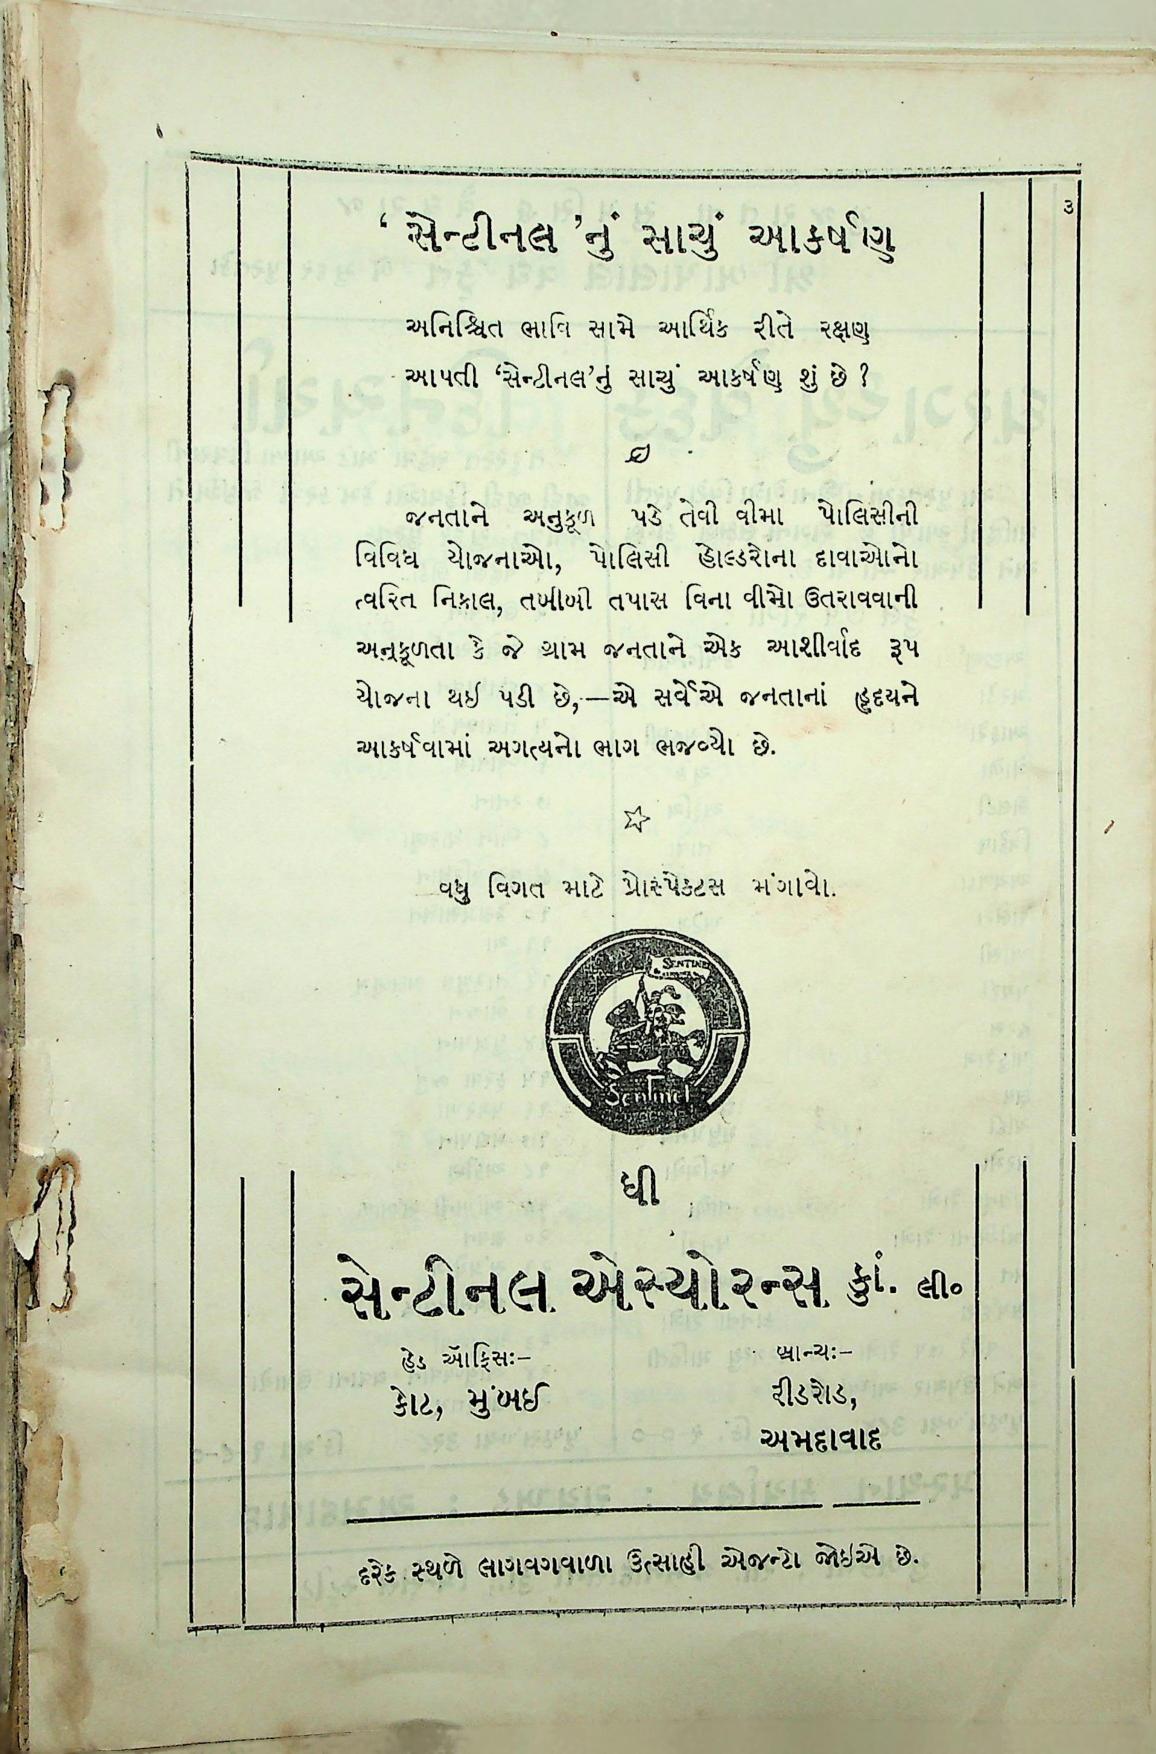 ૩
‘ સેન્ટીનલ ’નું સાચું આકર્ષણ
અનિશ્ચિત ભાવિ સામે આર્થિક રીતે રક્ષણ
આપતી ‘સેન્ટીનલ’નું સાચું આકર્ષણ શું છે ?
જનતાને અનુકૂળ પડે તેવી વીમા પોલિસીની
વિવિધ યોજનાઓ, પોલિસી હોલ્ડરોના દાવાઓનો
ત્વરિત નિકાલ, તબીબી તપાસ વિના વીમો ઉતરાવવાની
અનુકૂળતા કે જે ગ્રામ જનતાને એક આશીર્વાદ રૂપ
યોજના થઇ પડી છે,—એ સર્વેએ જનતાનાં હૃદયને
આકર્ષવામાં અગત્યનો ભાગ ભજવ્યો છે.
વધુ વિગત માટે પ્રોસ્પેકટસ મંગાવો.
SENTINEL
Sentinel
ધી
સેન્ટીનલ એસ્યોરન્સ કુાં. લી૦
હેડ ઑફિસઃ–
કોટ, મુંબઈ
બ્રાન્ચઃ–
રીડરોડ,
અમદાવાદ
દરેક સ્થળે લાગવગવાળા ઉત્સાહી એજન્ટો જોઇએ છે.